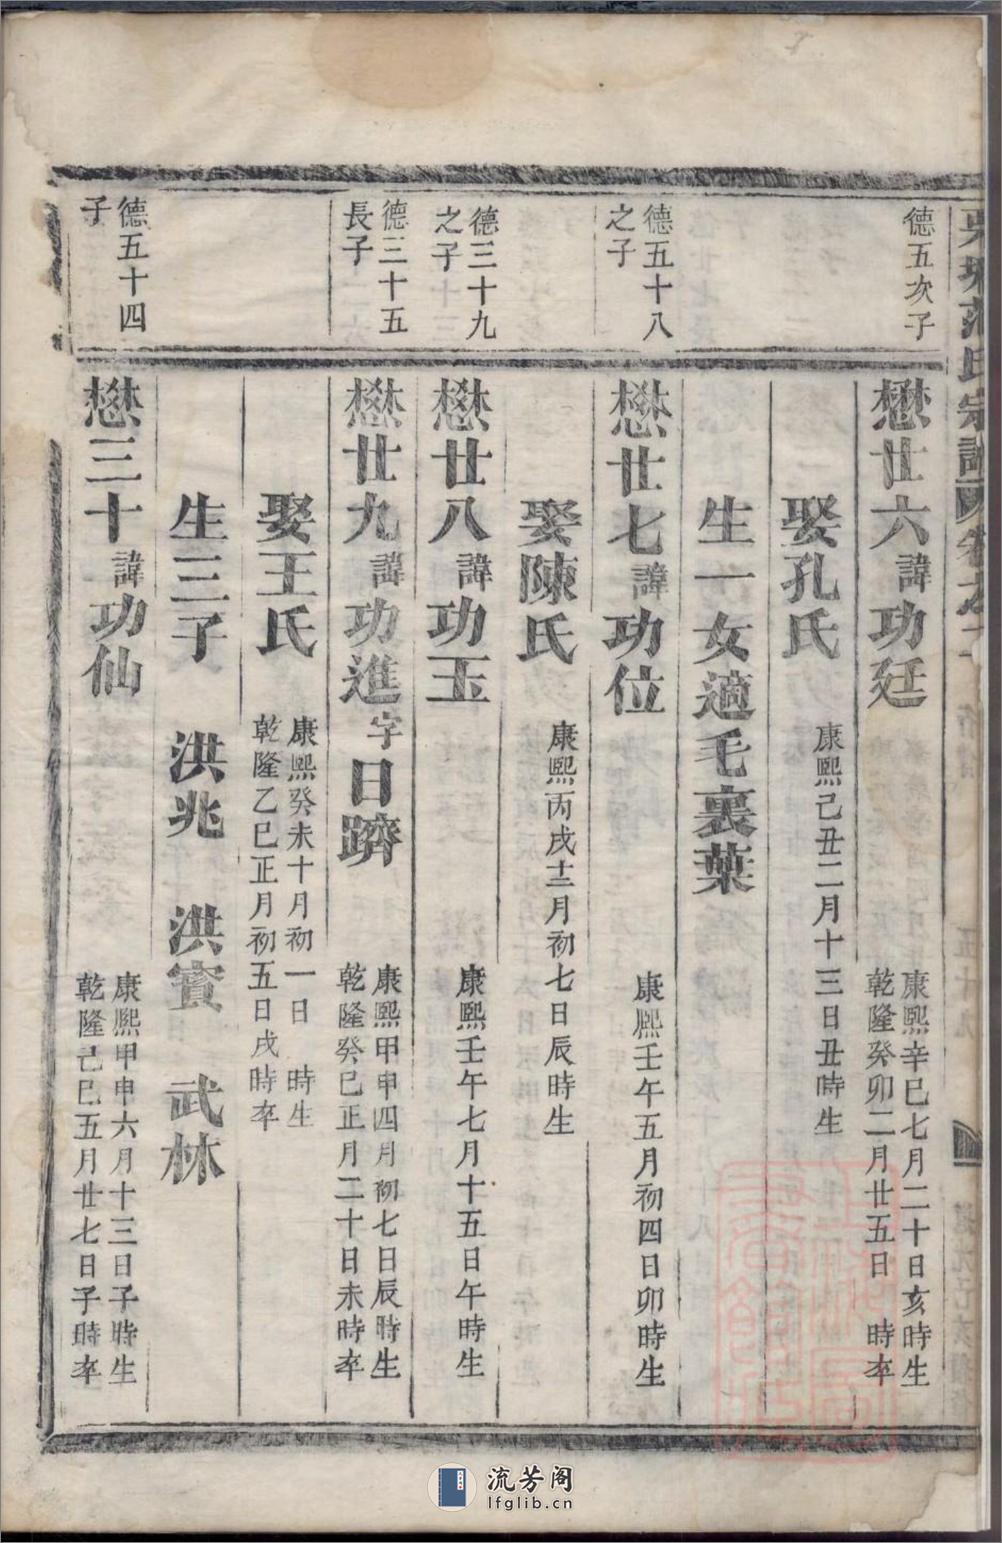 德五次子
懋廿六諱功廷
康熙辛巳七月二十日亥時生
乾隆癸卯二月廿五日 時卒
娶孔氏
康熙己丑二月十三日丑時生
生一女適毛裏葉
德五十八
之子
懋廿七諱功位
康熙壬午五月初四日卯時生
娶陳氏
康熙丙戌十二月初七日辰時生
德三十九
之子
懋廿八諱功玉
康熙壬午七月十五日午時生
德三十五
長子
懋廿九諱功進字日躋
康熙甲申四月初七日辰時生
乾隆癸巳正月二十日未時卒
娶王氏
康熙癸未十月初一日 時生
乾隆乙巳正月初五日戌時卒
生三子 洪兆 洪賓 武林
德五十四
子
懋三十諱功仙
康熙甲申六月十三日子時生
乾隆己巳五月廿七日子時卒
流芳阁
lfglib.cn